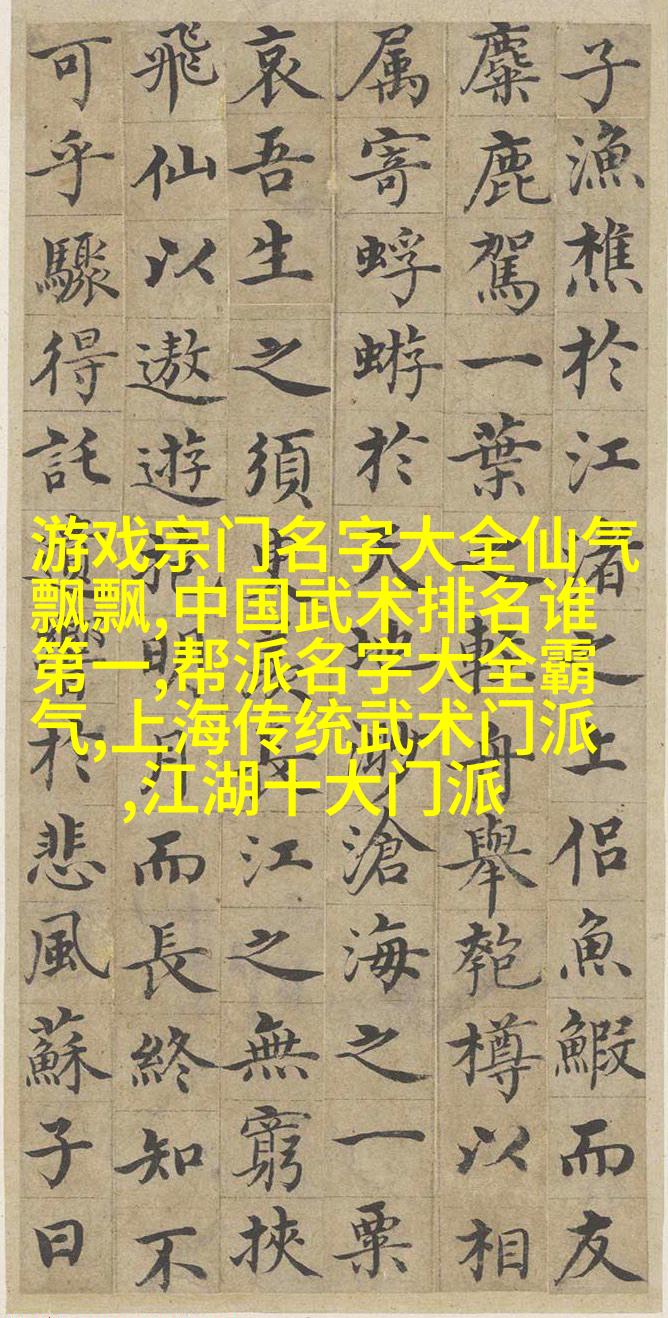 子漁樵於江渚之上侶魚鰕而友
麋鹿駕一葉之輕舟舉匏樽以相
属寄蜉蝣於天地渺滄海之一粟
哀吾生之須臾羨長江之無窮挾
飛仙以遨遊抱明月而長終知不
可乎驟得託遺響於悲風蘇子曰
游戏宗门名字大全仙气
飘飘,中国武术排名谁
第一,帮派名字大全霸
气,上海传统武术门派
,江湖十大门派